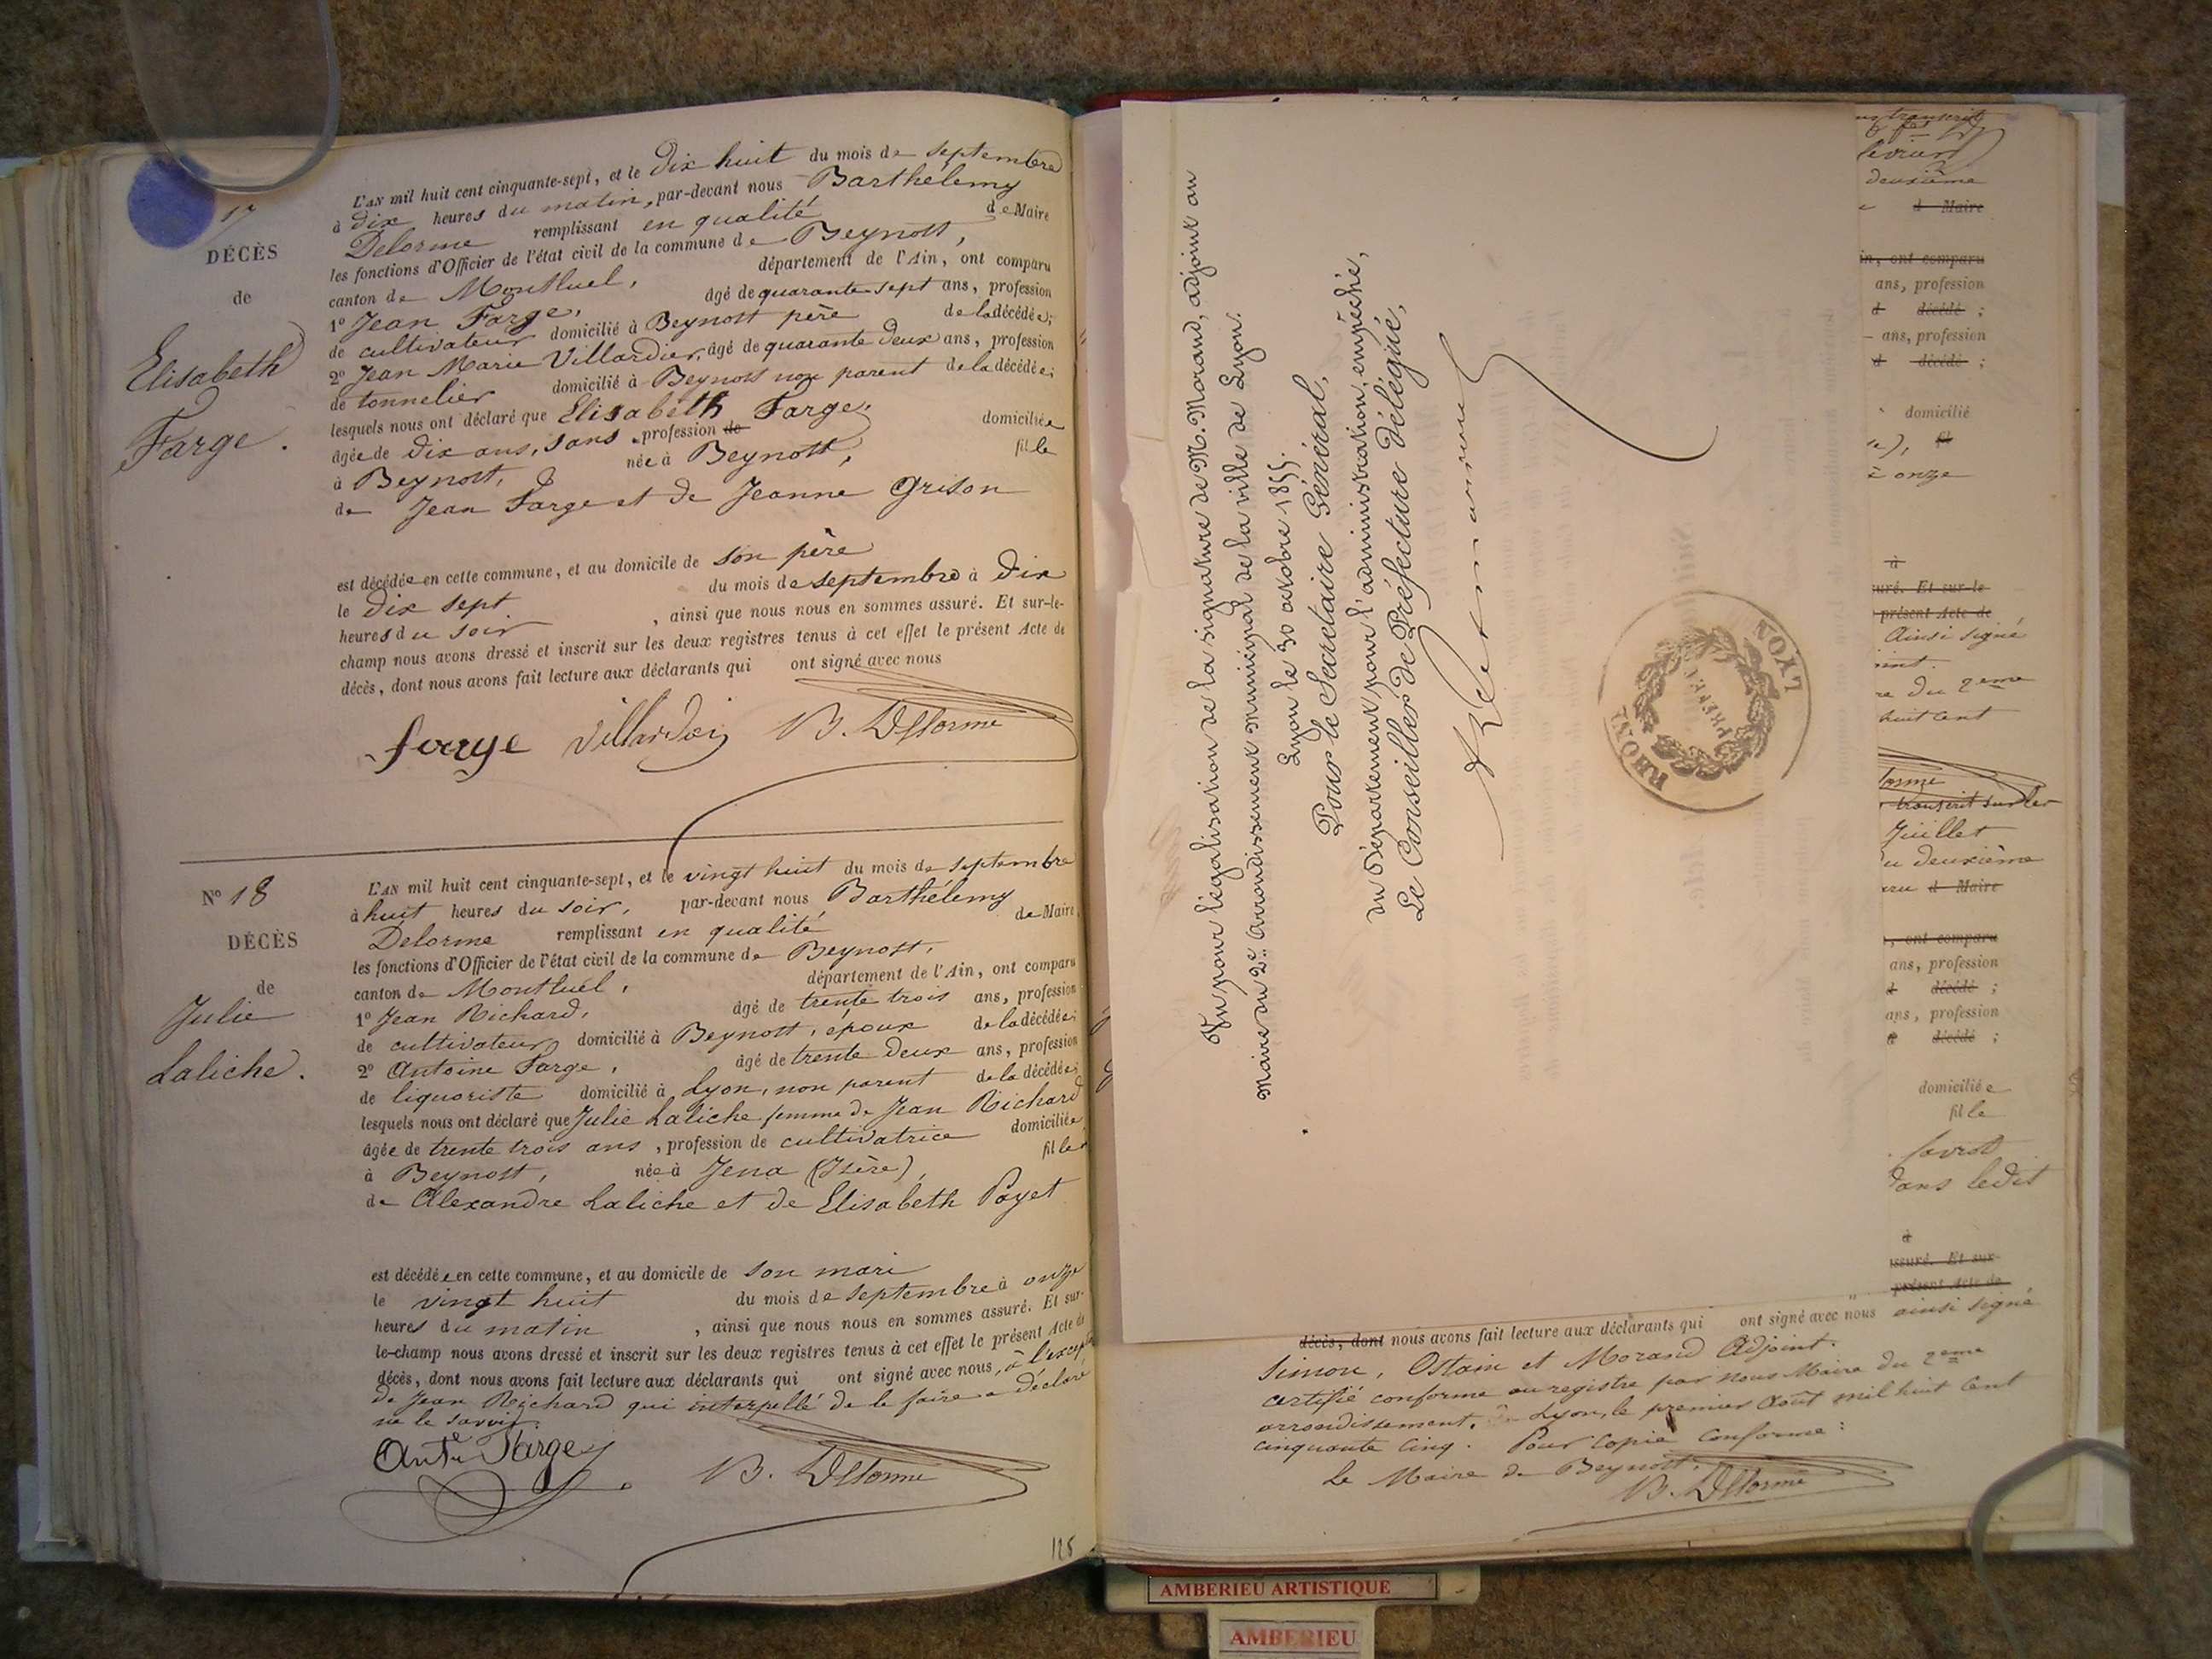 17
DÉCÈS
de
Elisabeth
Farge.
L'AN mil huit cent cinquante-sept, et le dix huit du mois de septembre
à dix heures du matin, par-devant nous Barthélemy
Delorme remplissant en qualité de Maire
les fonctions d'Officier de l'état civil de la commune de Beynost,
canton de Montluel, département de l'Ain, ont comparu
1º Jean Farge, âgé de quarante sept ans, profession
de cultivateur domicilié à Beynost père de la décédée;
2º Jean Marie Villardier, âgé de quarante deux ans, profession
de tonnelier domicilié à Beynost non parent de la décédée;
lesquels nous ont déclaré que Elisabeth Farge,
âgée de dix ans, sans profession de domiciliée
à Beynost, née à Beynost, fille
de Jean Farge et de Jeanne Grison
est décédée en cette commune, et au domicile de son père
le dix sept du mois de septembre à dix
heures du soir , ainsi que nous nous en sommes assuré. Et sur-le-
champ nous avons dressé et inscrit sur les deux registres tenus à cet effet le présent Acte de
décès, dont nous avons fait lecture aux déclarants qui ont signé avec nous
farge Villardier B. Delorme
Nº 18
DÉCÈS
de
Julie
Laliche.
L'AN mil huit cent cinquante-sept, et le vingt huit du mois de septembre
à huit heures du soir, par-devant nous Barthélemy
Delorme remplissant en qualité de Maire
les fonctions d'Officier de l'état civil de la commune de Beynost,
canton de Montluel, département de l'Ain, ont comparu
1º Jean Richard, âgé de trente trois ans, profession
de cultivateur domicilié à Beynost, époux de la décédée;
2º Antoine Farge, âgé de trente deux ans, profession
de liquoriste domicilié à Lyon, non parent de la décédée;
lesquels nous ont déclaré que Julie Laliche femme de Jean Richard
âgée de trente trois ans, profession de cultivatrice domiciliée
à Beynost, née à Jena (Isère), fille
de Alexandre Laliche et de Elisabeth Payet
est décédée en cette commune, et au domicile de son mari
le vingt huit du mois de septembre à onze
heures du matin , ainsi que nous nous en sommes assuré. Et sur-
le-champ nous avons dressé et inscrit sur les deux registres tenus à cet effet le présent Acte de
décès, dont nous avons fait lecture aux déclarants qui ont signé avec nous, à l'excep
de Jean Richard qui interpellé de le faire a déclaré
ne le savoir.
Ante Farge B. Delorme
125
Vu pour légalisation de la signature de M. Morand, adjoint au
Maire du 2e arrondissement municipal de la ville de Lyon.
Lyon le 30 octobre 1855.
Pour le Secrétaire Général,
du Département pour l'administration, empêché,
Le Conseiller de Préfecture délégué,
RHÔNE PRÉFRE LYON
transcrit
deuxième
d Maire
in, ont comparu
ans, profession
d décédé ;
ans, profession
d décédé ;
domicilié
fil
à onze
à
suré. Et sur-le
présent Acte de
Ainsi signé
oint.
re du 2eme
huit cent
lorme
transcrit sur les
Juillet
du deuxième
d Maire
, ont comparu
ans, profession
d décédé ;
ans, profession
d décédé ;
domiciliée
fille
dans ledit
à
ssuré. Et sur-
présent Acte de
décès, dont nous avons fait lecture aux déclarants qui ont signé avec nous ainsi signé
Simon, Ostain et Morand Adjoint.
certifié conforme au registre par nous Maire du 2eme
arrondissement. Lyon, le premier Août mil huit cent
cinquante cinq. Pour copie conforme :
Le Maire de Beynost.
B. Delorme
AMBERIEU ARTISTIQUE
AMBERIEU